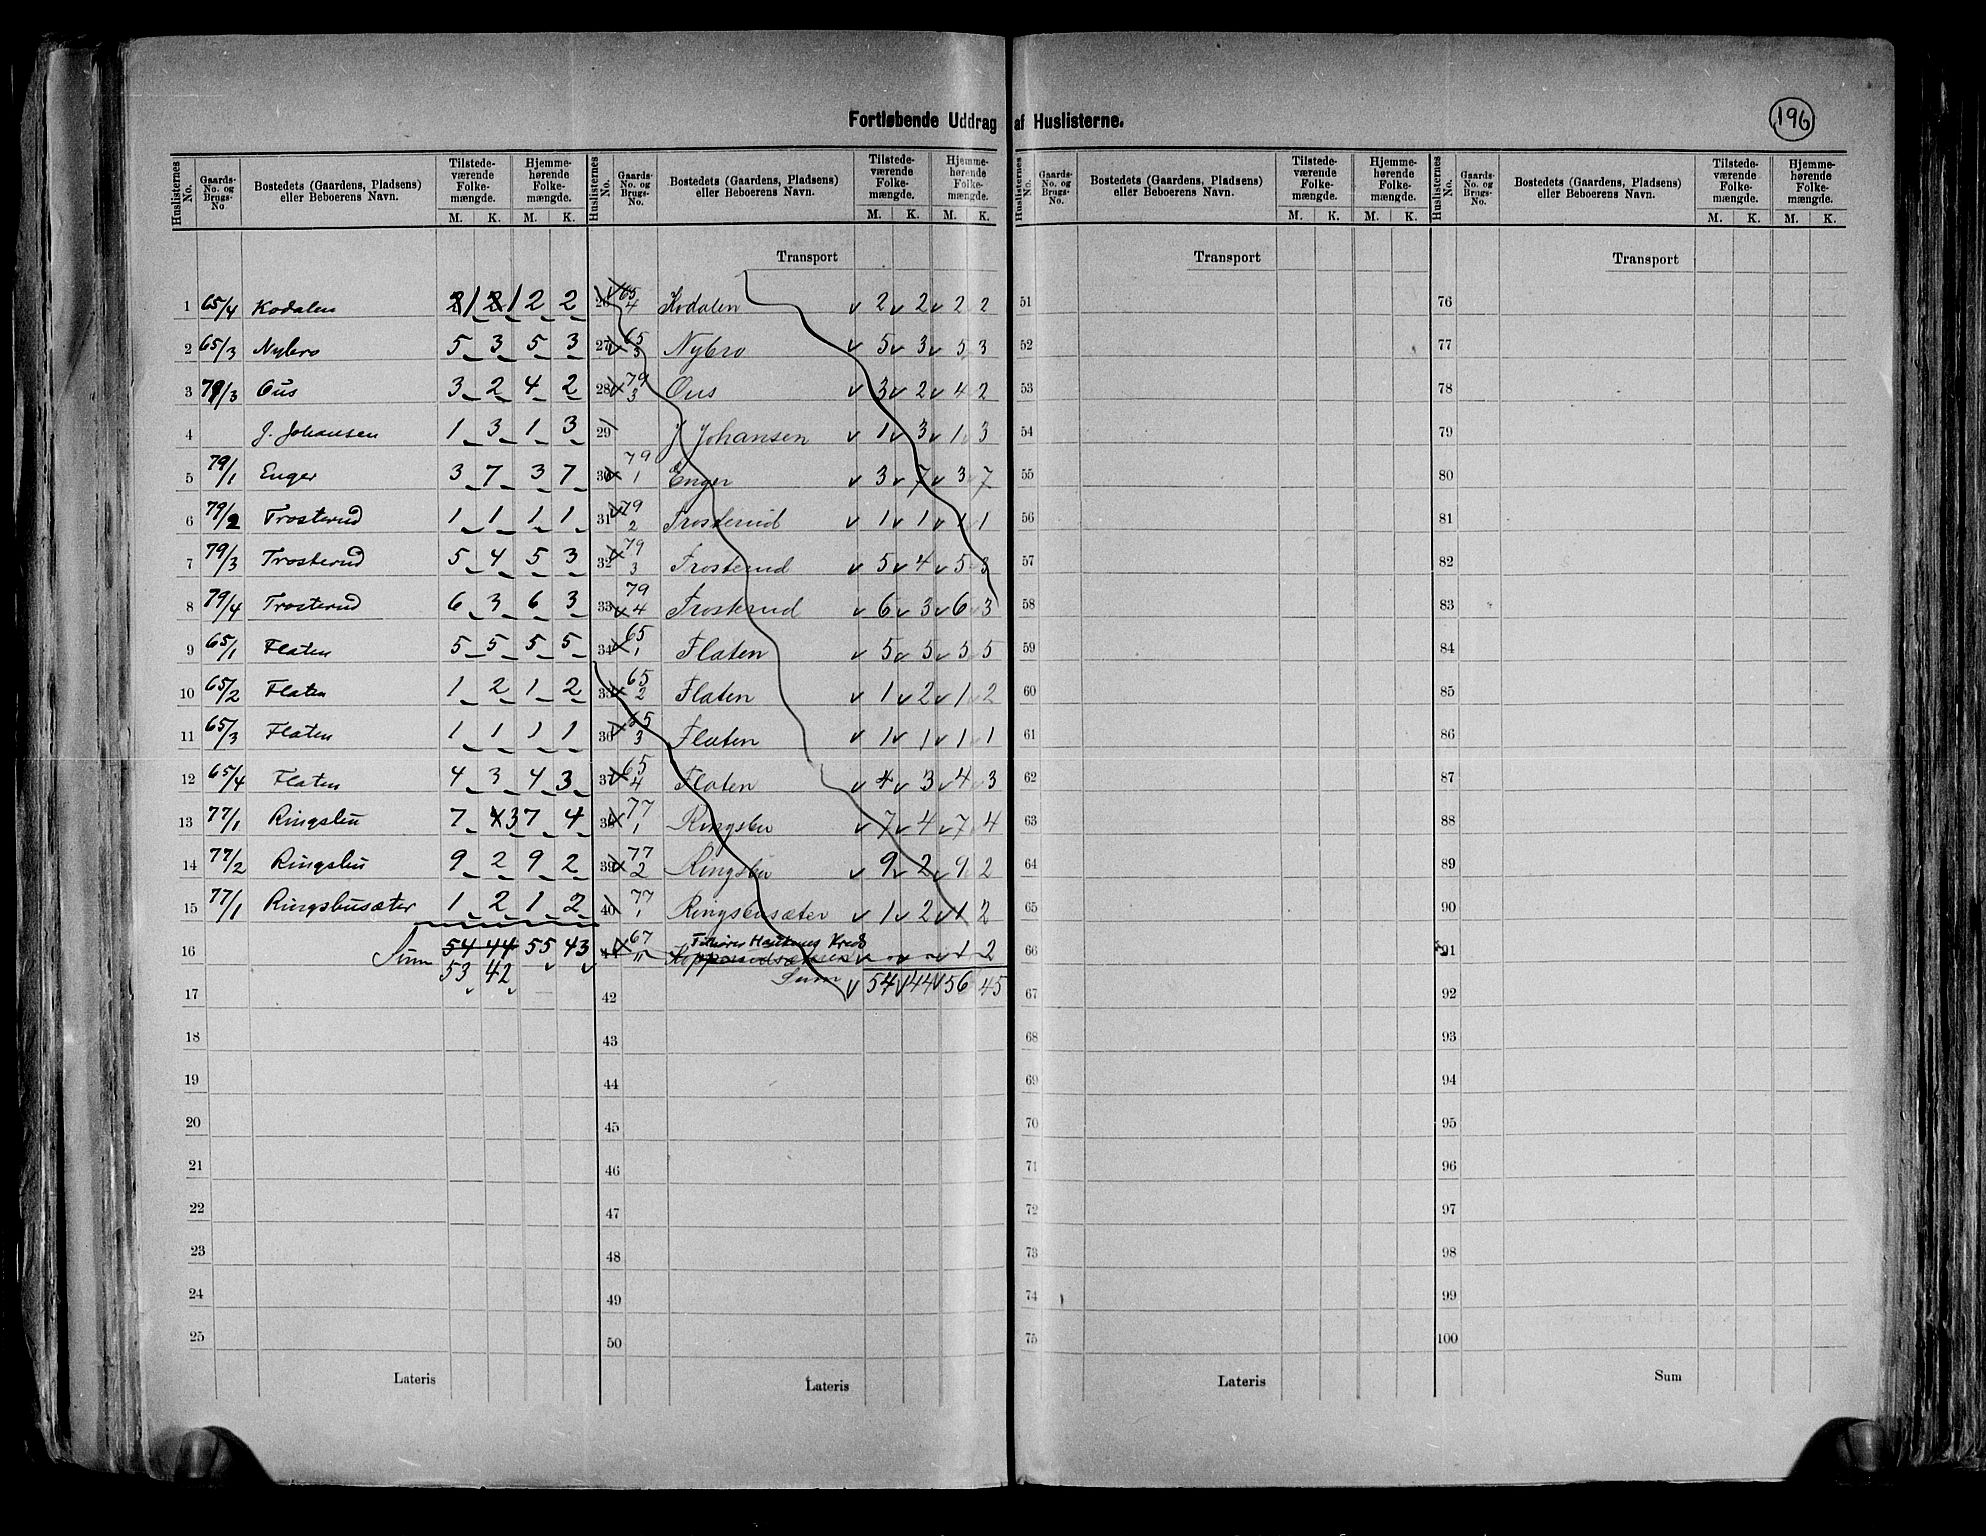 Fortløbende Uddrag af Huslisterne.
196
Huslisternes No. Gaards-No. og Brugs-No. Bostedets (Gaardens, Pladsens) eller Beboerens Navn. Tilstedeværende Folkemængde. M. K. Hjemmehørende Folkemængde. M. K.
1 65/4 Kodalen 2 1 2 1 2 2
2 65/3 Nybro 5 3 5 3
3 79/3 Ous 3 2 4 2
4 J. Johansen 1 3 1 3
5 79/1 Enger 3 7 3 7
6 79/2 Trosterud 1 1 1 1
7 79/3 Trosterud 5 4 5 3
8 79/4 Trosterud 6 3 6 3
9 65/1 Flaten 5 5 5 5
10 65/2 Flaten 1 2 1 2
11 65/3 Flaten 1 1 1 1
12 65/4 Flaten 4 3 4 3
13 77/1 Ringsbu 7 4 3 7 4
14 77/2 Ringsbu 9 2 9 2
15 77/1 Ringsbusæter 1 2 1 2
16 Sum 54 44 55 43
53 42
17
18
19
20
21
22
23
24
25
Lateris
Huslisternes No. Gaards-No. og Brugs-No. Bostedets (Gaardens, Pladsens) eller Beboerens Navn. Tilstedeværende Folkemængde. M. K. Hjemmehørende Folkemængde. M. K.
Transport
26 65/4 Kodalen 2 2 2 2
27 65/3 Nybro 5 3 5 3
28 79/3 Ous 3 2 4 2
29 J Johansen 1 3 1 3
30 79/1 Enger 3 7 3 7
31 79/2 Trosterud 1 1 1 1
32 79/3 Trosterud 5 4 5 3
33 79/4 Trosterud 6 3 6 3
34 65/1 Flaten 5 5 5 5
35 65/2 Flaten 1 2 1 2
36 65/3 Flaten 1 1 1 1
37 65/4 Flaten 4 3 4 3
38 77/1 Ringsbu 7 4 7 4
39 77/2 Ringsbu 9 2 9 2
40 77/1 Ringsbusæter 1 2 1 2
41 67/11 Kreds 1 2
Sum 54 44 56 45
42
43
44
45
46
47
48
49
50
Lateris
Huslisternes No. Gaards-No. og Brugs-No. Bostedets (Gaardens, Pladsens) eller Beboerens Navn. Tilstedeværende Folkemængde. M. K. Hjemmehørende Folkemængde. M. K.
Transport
51
52
53
54
55
56
57
58
59
60
61
62
63
64
65
66
67
68
69
70
71
72
73
74
75
Lateris
Huslisternes No. Gaards-No. og Brugs-No. Bostedets (Gaardens, Pladsens) eller Beboerens Navn. Tilstedeværende Folkemængde. M. K. Hjemmehørende Folkemængde. M. K.
Transport
76
77
78
79
80
81
82
83
84
85
86
87
88
89
90
91
92
93
94
95
96
97
98
99
100
Sum